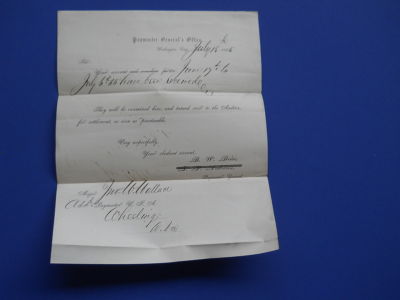 Paymaster General's Office,
Washington City, July 15th 186
Sir:
Your account and vouchers from Jan 17th to
July 5th 65 have been received.
They will be examined here, and turned over to the Auditor,
for settlement, as soon as practicable.
Very respectfully,
Your obedient servant,
B. W. Brice,
Paymaster General.
Major
Addl. Paymaster U. S. A.
Wheeling,